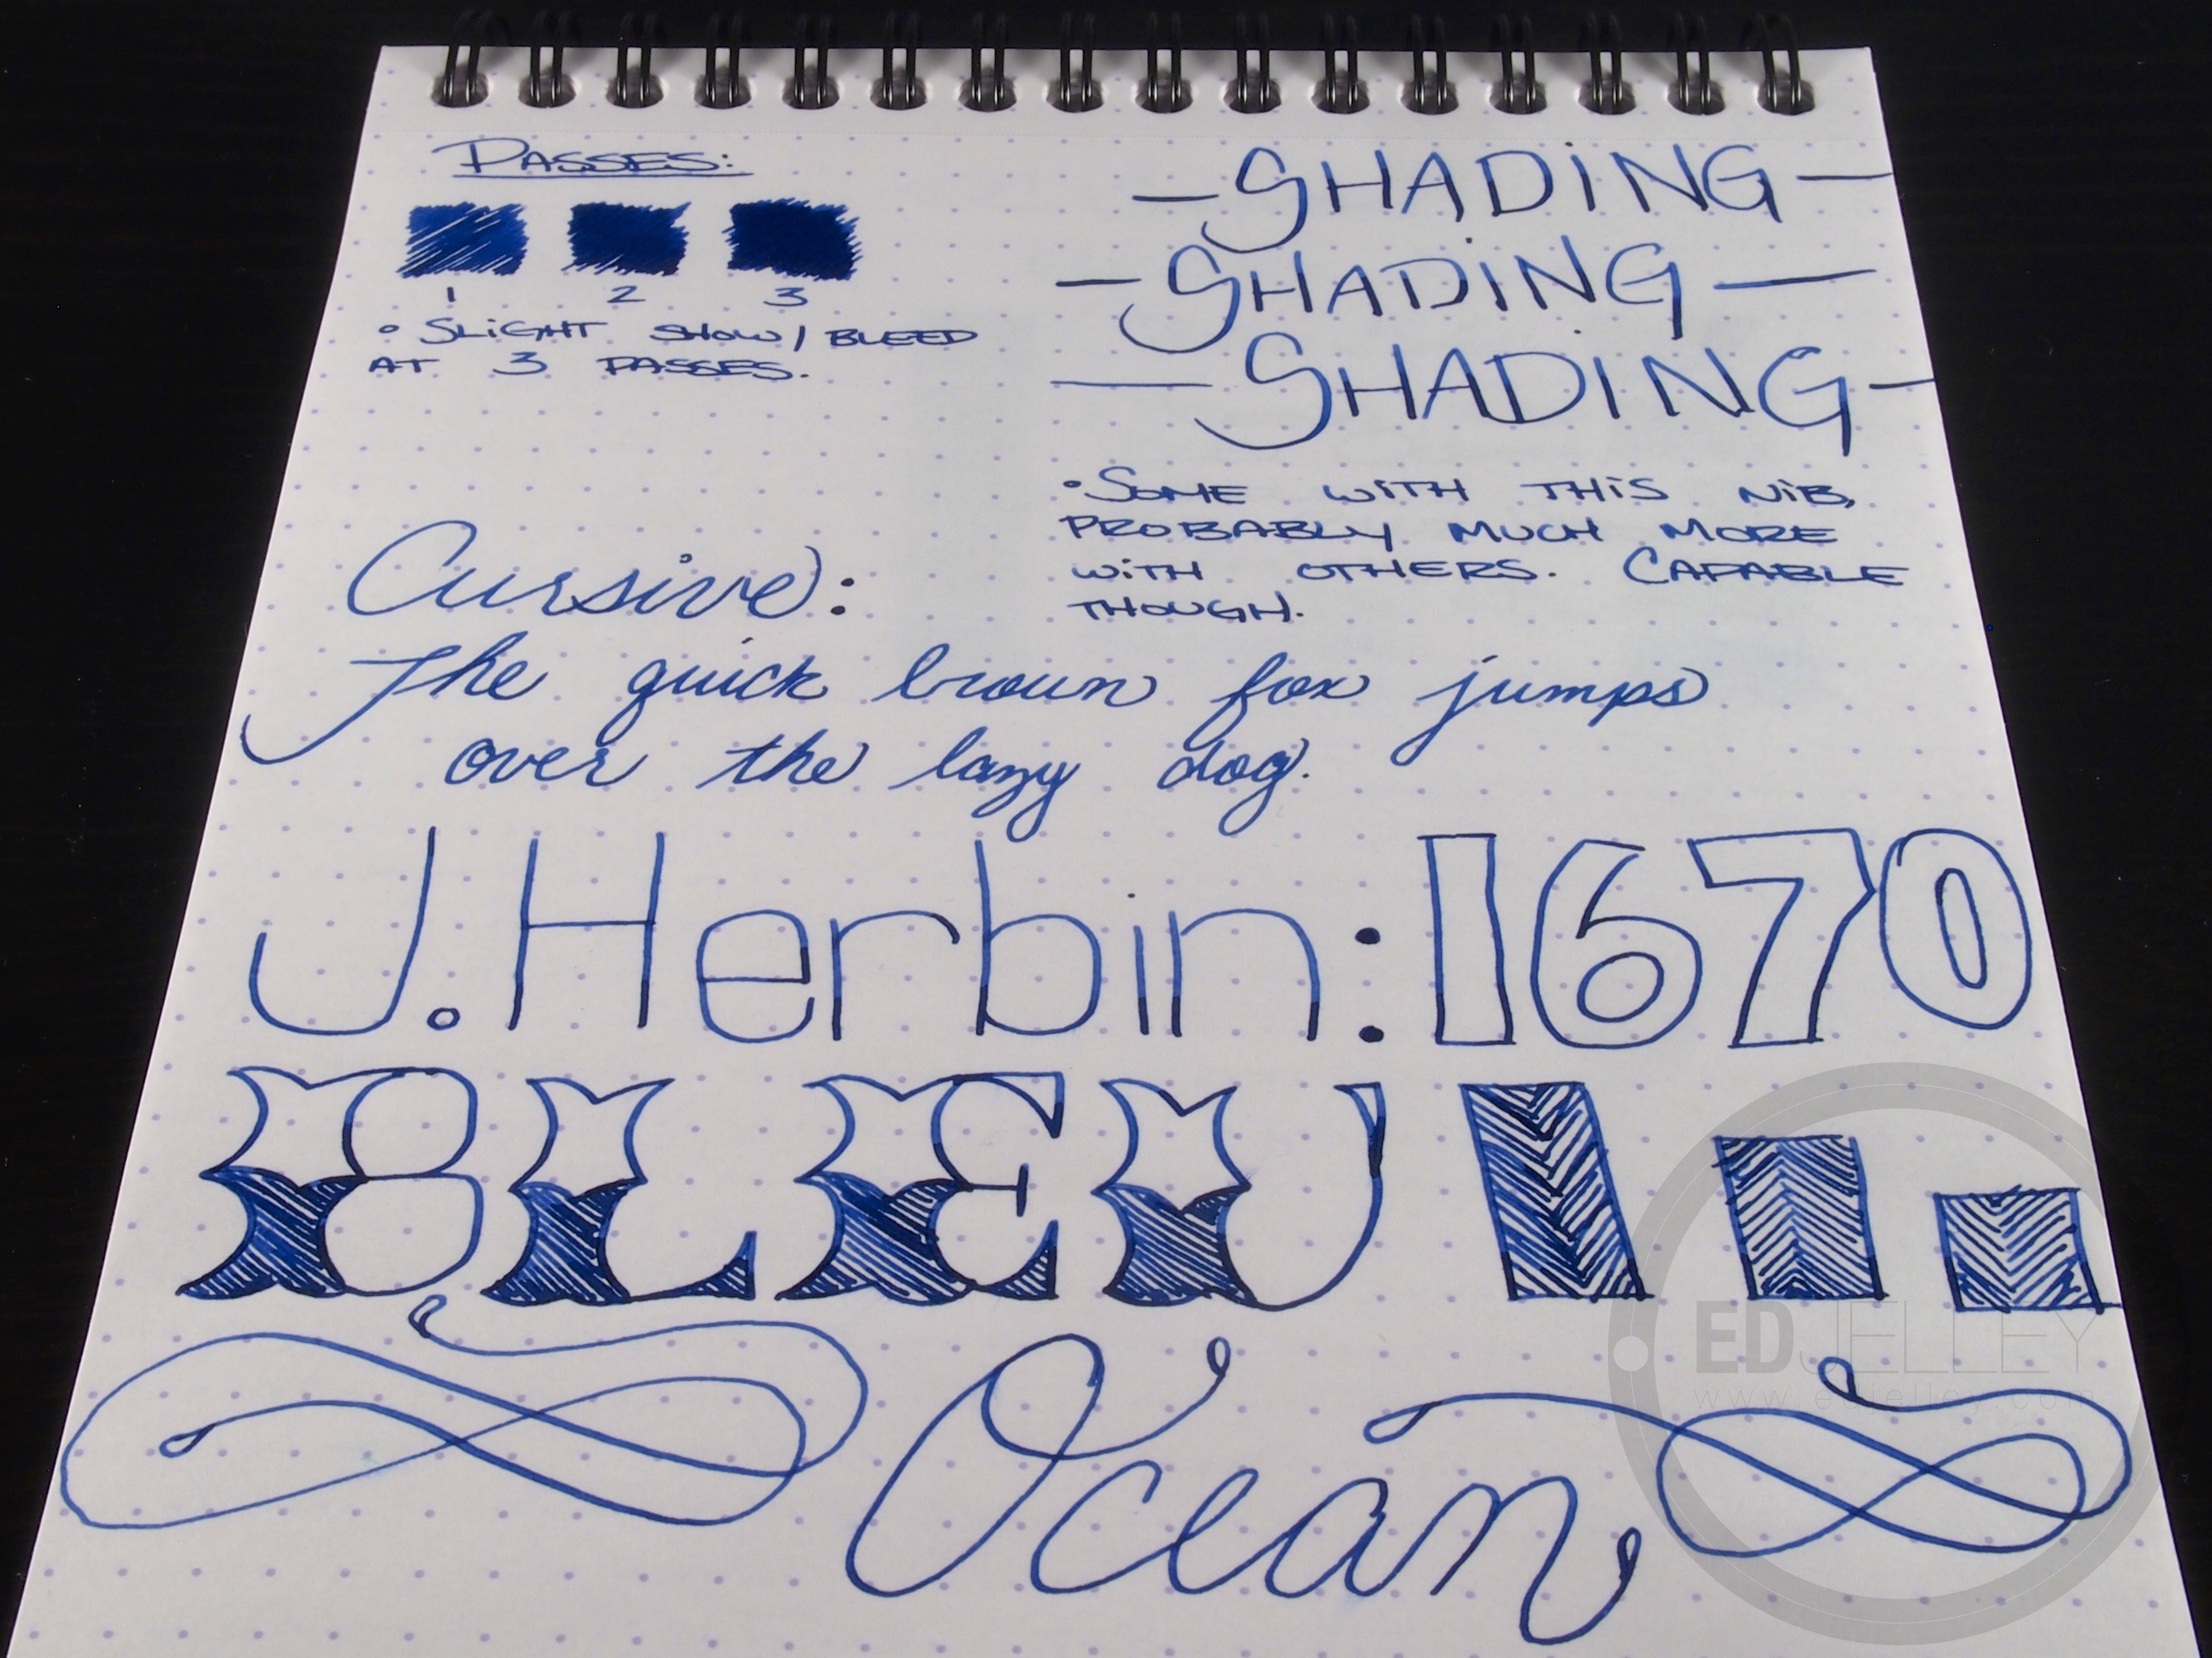 PASSES:
1 2 3
• SLiGHT SHOW/BLEED
AT 3 PASSES.
—SHADiNG—
—SHADiNG—
—SHADING—
•SOME WiTH THiS NiB,
PROBABLY MUCH MORE
WiTH OTHERS. CAPABLE
THOUGH.
Cursive:
The quick brown fox jumps
over the lazy dog.
J. Herbin: 1670
BLEU
Ocean
EDJELLEY
www.edjelley.com